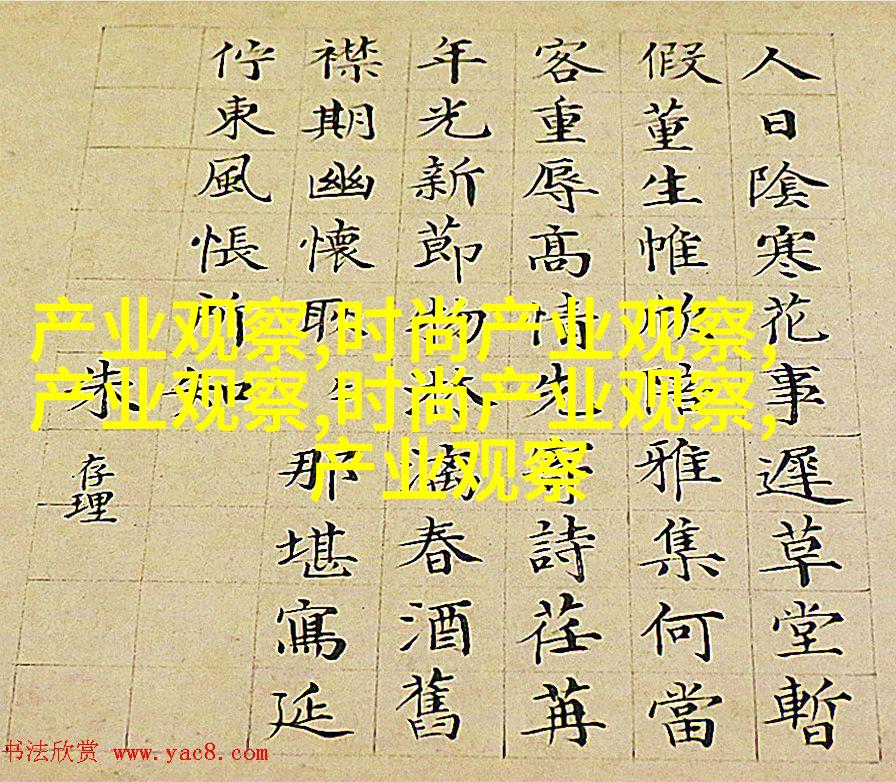 人日陰寒花事遲草堂暫
假董生帷欣雅集何當
客重辱高情先詩荏苒
年光新節物漓春酒舊
襟期幽懷耿那堪寫延
佇東風悵所知
朱存理
产业观察,时尚产业观察,
产业观察,时尚产业观察,
产业观察
书法欣赏 www.yac8.com